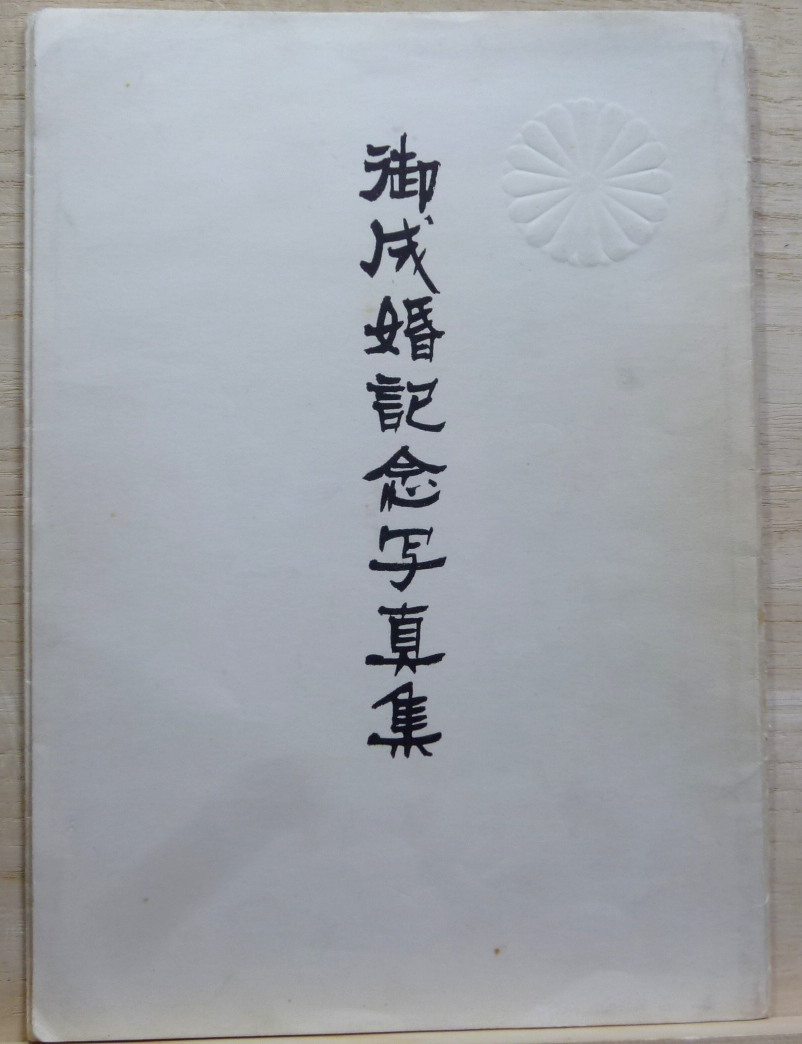 御成婚記念写真集